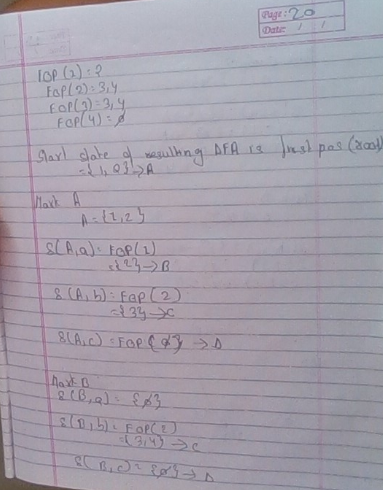 Page: 20
Date: / /
FOP(1) = 2
FOP(2) = 3,4
FOP(3) = 3,4
FOP(4) = ø
Start state of resulting DFA is first pos (root)
= {1, 2} → A
Mark A
A = {1,2}
δ(A,a) = FOP(1)
= {2} → B
δ(A, b) = FOP(2)
= {3} → C
δ(A,c) = FOP{ø} → D
Mark B
δ(B,a) = {ø}
δ(B,b) = FOP(2)
= {3,4} → C
δ(B,c) = {ø} → D